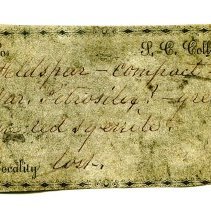 No. S. C. Coll
Feldspar – compact
Petrosilex? – gre
red syenite.
Locality lost.